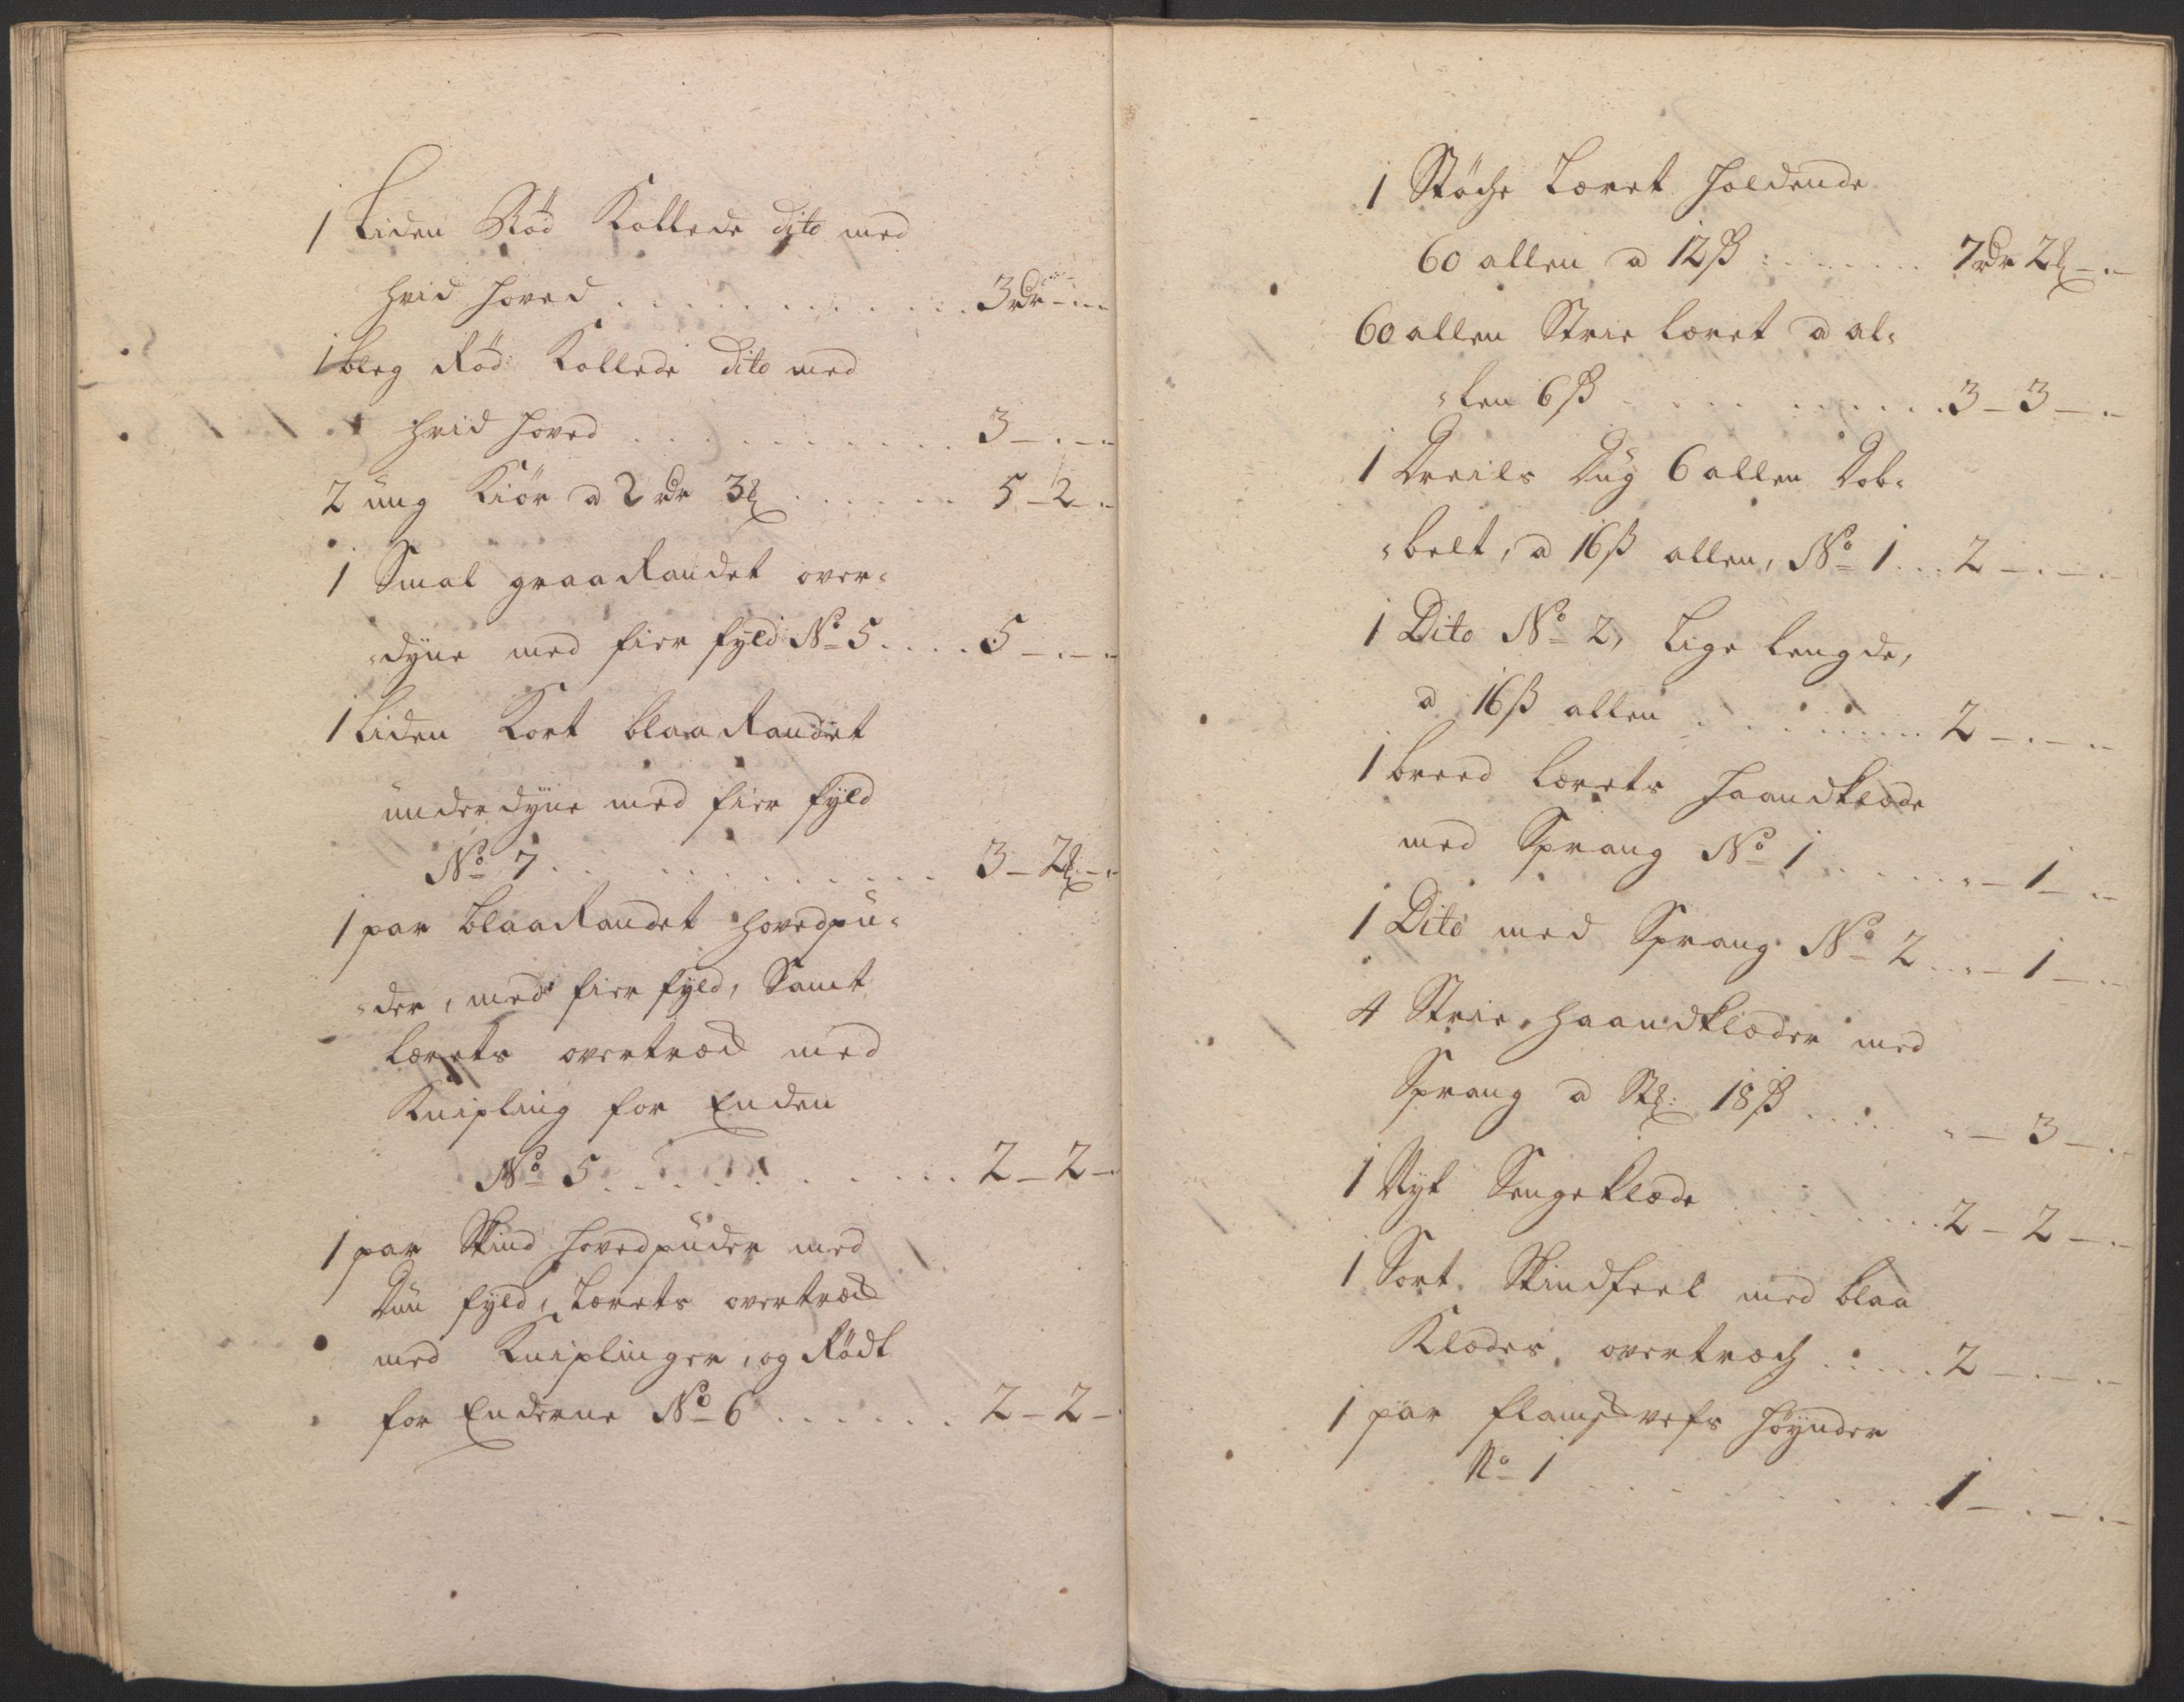 1 Liden Rød Kollede dito med
hvid hoved . . . . . . . . . . 3 rdr - . -
1 bleg Rød Kollede dito med
hvid hoved . . . . . . . . . . 3 - . -
2 ung Kiør a 2 rdr 3 . . . . . . 5 - 2 -
1 Smal graa Randet over-
dyne med fier fyld No 5 . . . . 5 - . -
1 Liden Kort blaa Randet
underdyne med fier fyld
No 7 . . . . . . . . . . 3 - 2 - .
1 par blaa Randet hovedpu-
der, med fier fyld, Samt
lærets overtræch med
Knipling for Enden
No 5 . . . . . . . . . . 2 - 2 - .
1 par Skind hovedpuder med
Duu fyld, Lærets overtræch
med Kniplinger, og Rødt
for Enderne No 6 . . . . . . 2 - 2 - .
1 Støche Læret holdende
60 allen a 12 ß . . . . . . 7 rdr 2 - . -
60 allen Strie læret a al-
len 6 ß . . . . . . . . . 3 - 3 - . -
1 Dreils Dug 6 allen Dob-
belt, a 16 ß allen, No 1 . . . 2 - . - . -
1 Dito No 2, Lige lengde,
a 16 ß allen . . . . . . . . 2 - . - . -
1 breed lærets haandklæde
med Sprang No 1 . . . . . - 1 - . -
1 Dito med Sprang No 2 . . - 1 - . -
4 Strie haandklæder med
Sprang a St: 18 ß . . . . . - 3 - . -
1 Nyt Sengeklæde . . . . . . 2 - 2 - . -
1 Sort Skindfeel med blaa
Klædes overtræch . . . . . 2 - . - . -
1 par flamsch vefs høynder
No 1 . . . . . . . . . 1 - . - . -